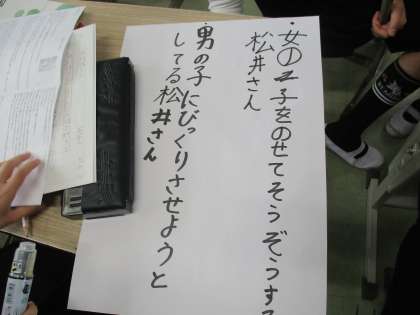 ・女の子をのせてそうぞうする
松井さん
・男の子にびっくりさせようと
してる松井さん